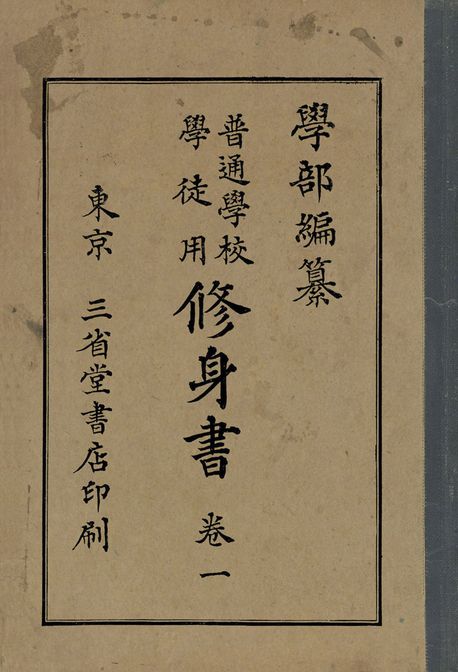 學部編纂
普通學校
學徒用
修身書 卷一
東京 三省堂書店印刷